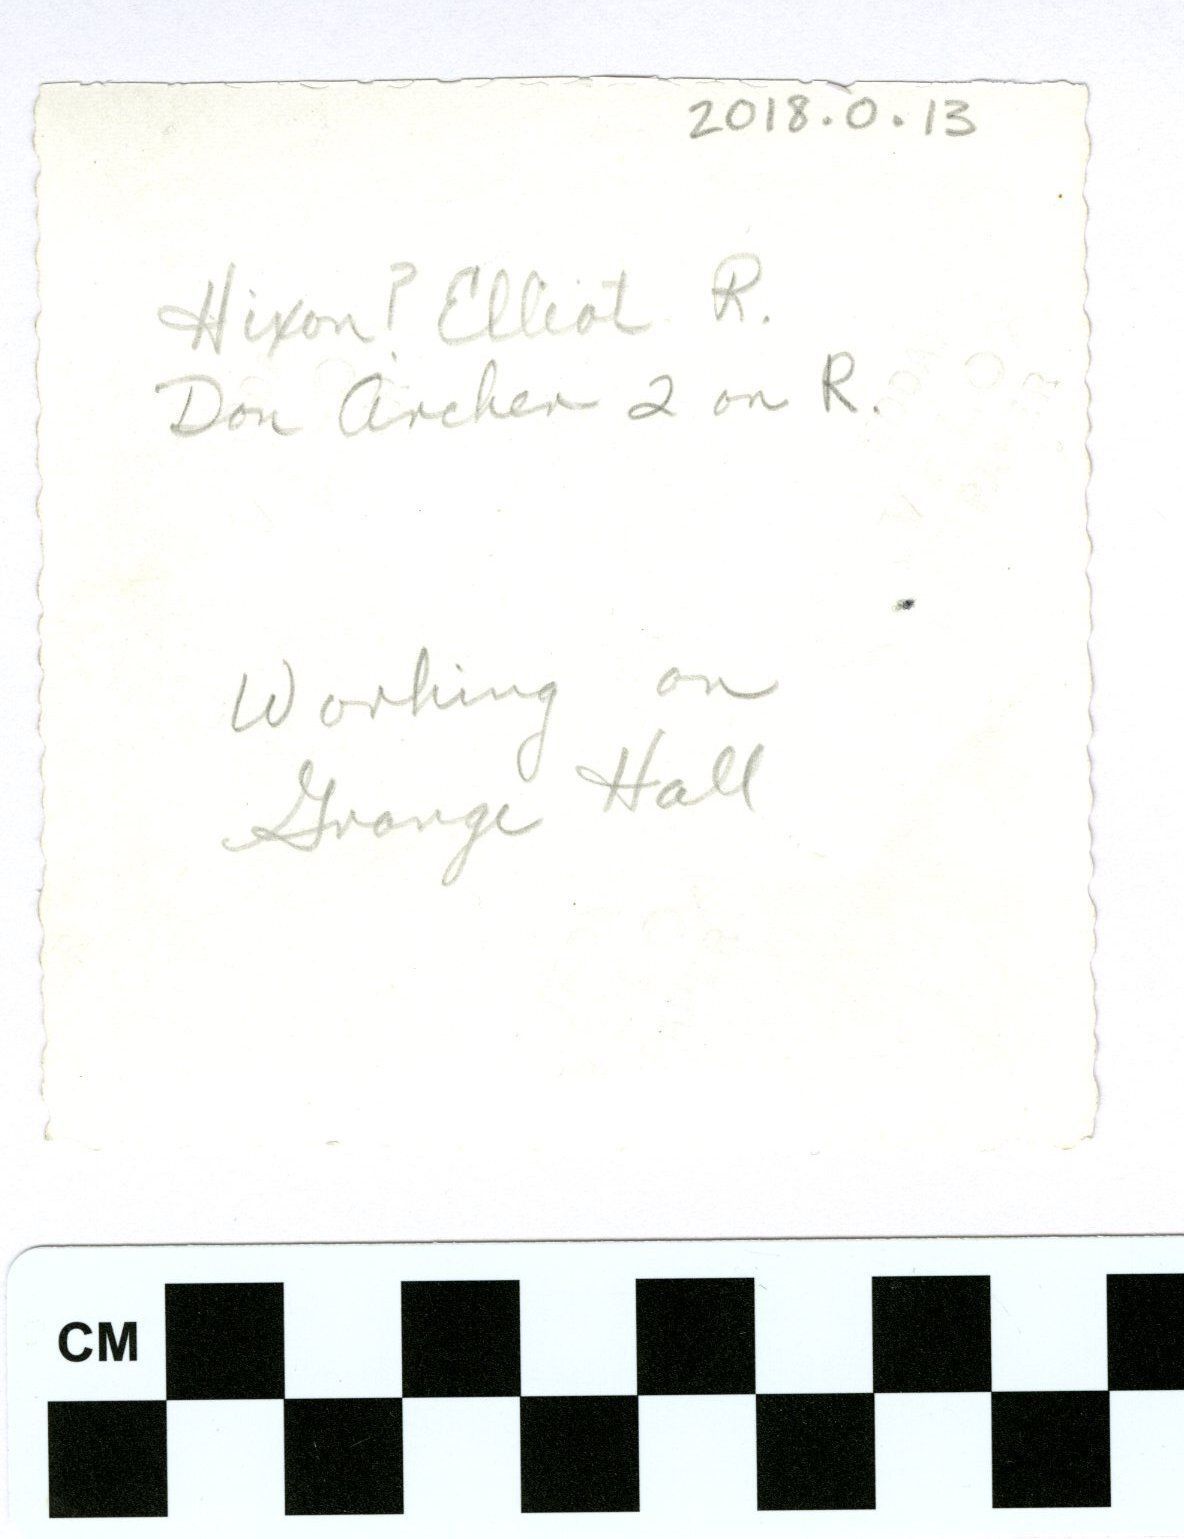 2018.0.13
Hixon? Elliot R.
Don Archer 2 on R.
Working on
Grange Hall
CM